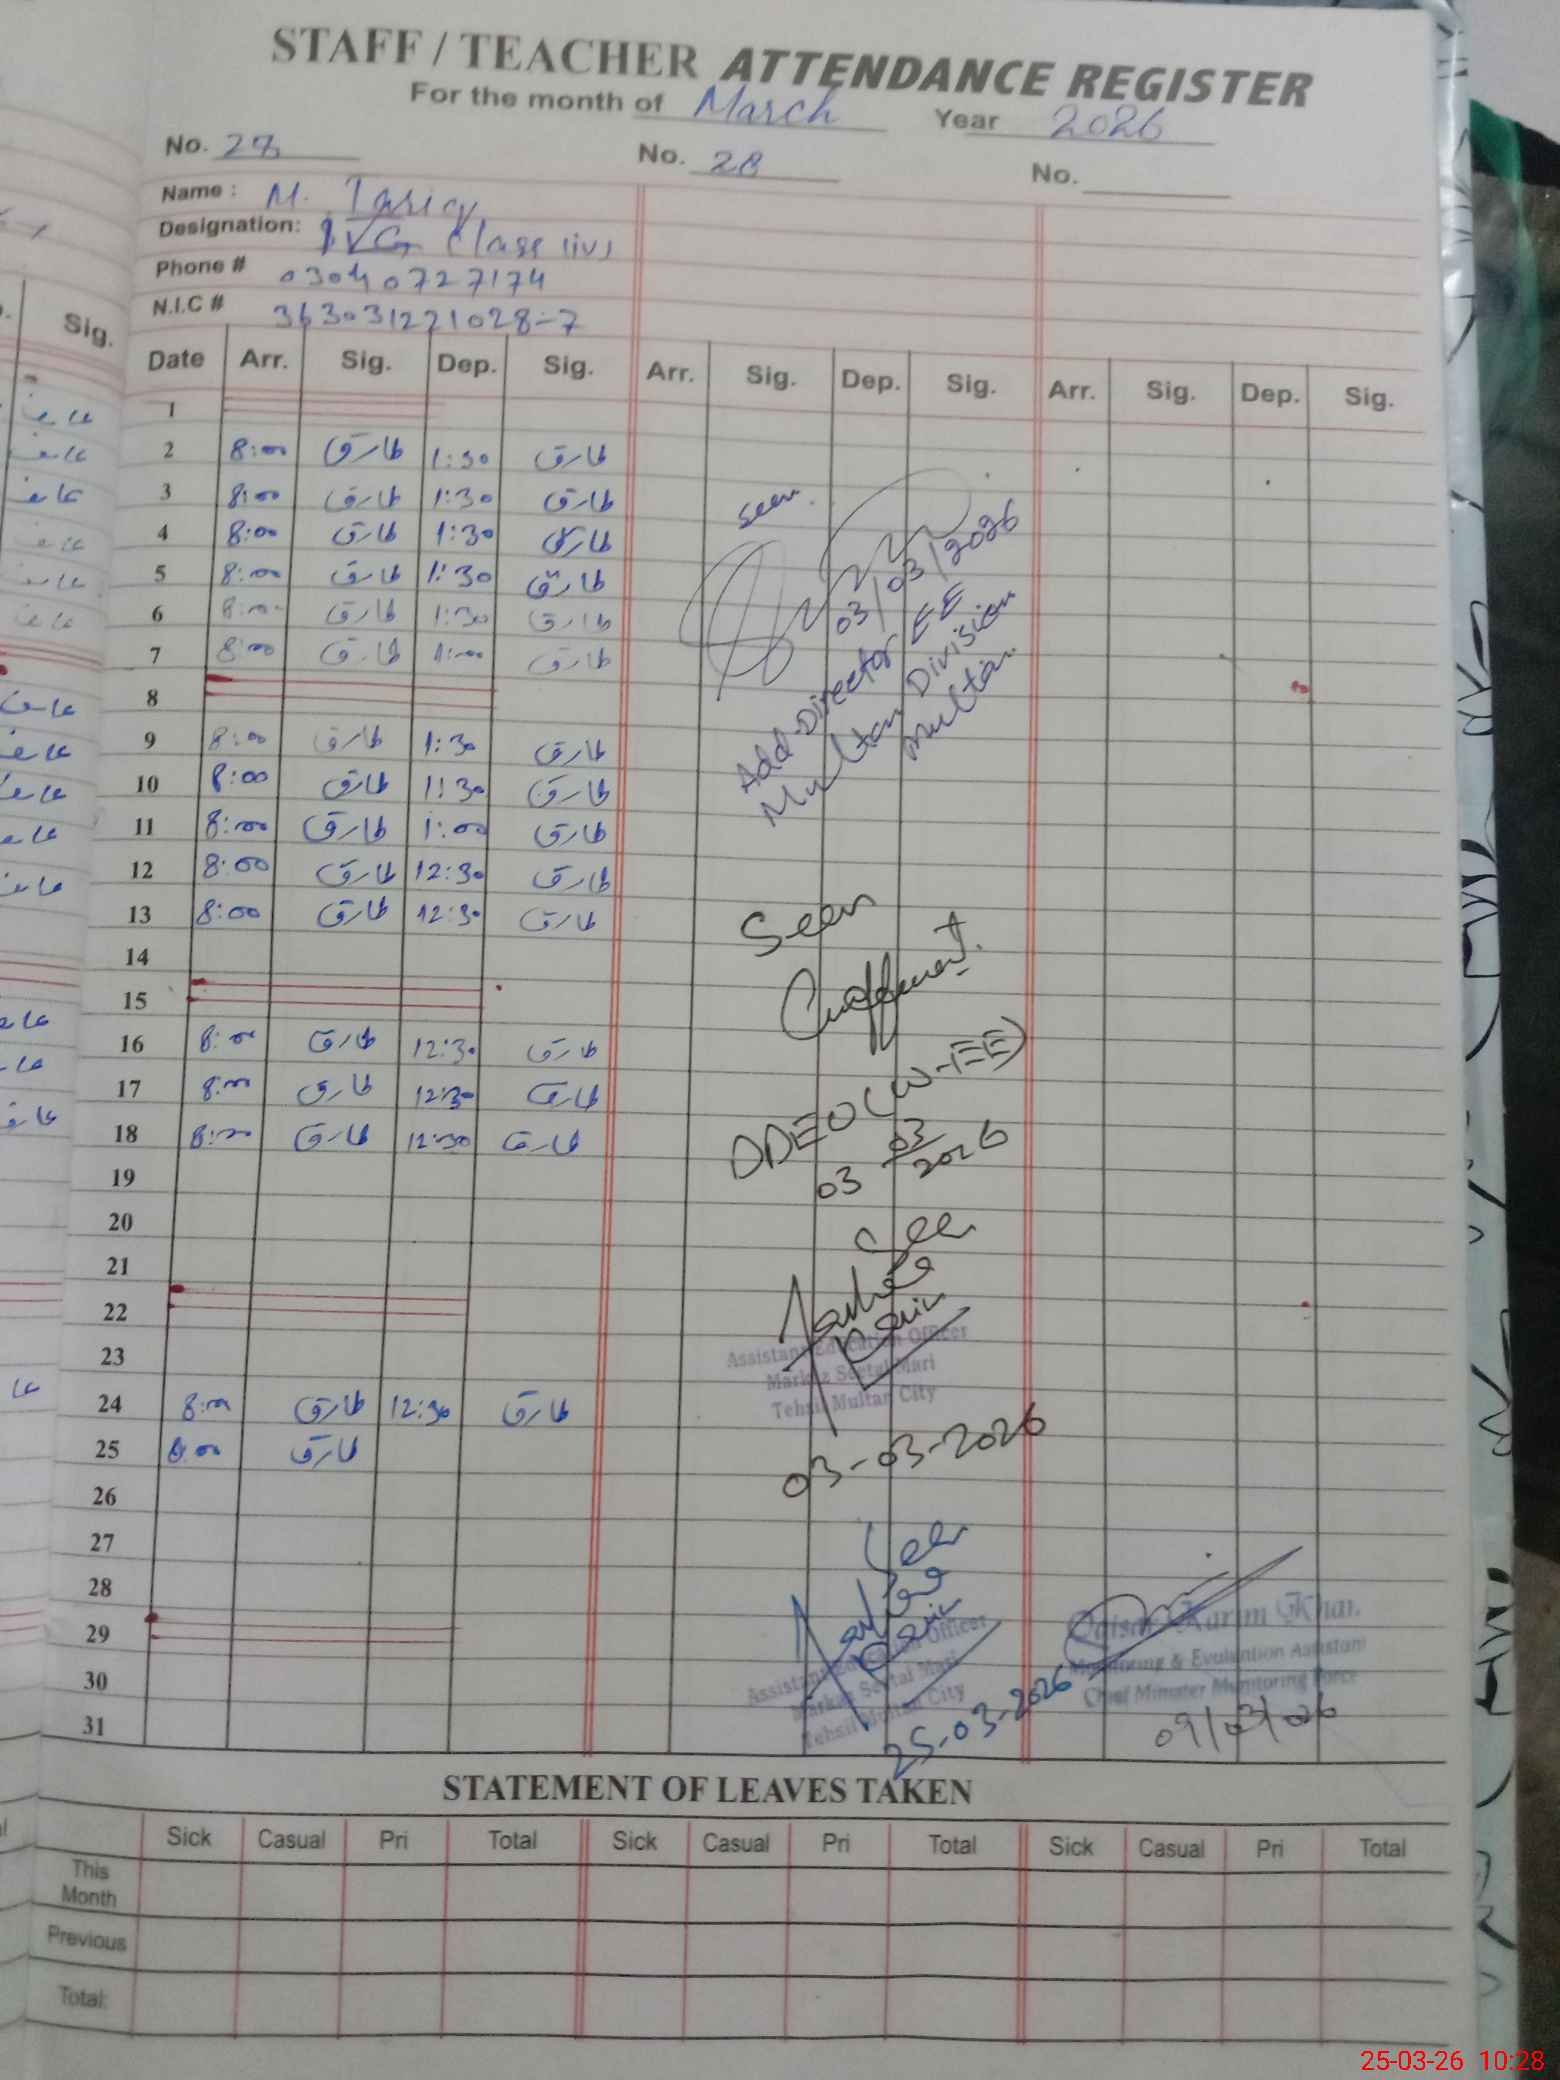 STAFF / TEACHER ATTENDANCE REGISTER
For the month of March Year 2026
No. 27 No. 28 No.
Name : M. Tariq
Designation: Class (iv)
Phone # 03040727174
N.I.C # 363031221028-7
Sig.
Date Arr. Sig. Dep. Sig. Arr. Sig. Dep. Sig. Arr. Sig. Dep. Sig.
1
2 8:00 طارق 1:30 طارق
3 8:00 طارق 1:30 طارق
4 8:00 طارق 1:30 طارق
5 8:00 طارق 1:30 طارق
6 8:00 طارق 1:30 طارق
7 8:00 طارق 1:00 طارق
8
9 8:00 طارق 1:30 طارق
10 8:00 طارق 1:30 طارق
11 8:00 طارق 1:00 طارق
12 8:00 طارق 12:30 طارق
13 8:00 طارق 12:30 طارق
14
15
16 8:00 طارق 12:30 طارق
17 8:00 طارق 12:30 طارق
18 8:00 طارق 12:30 طارق
19
20
21
22
23
24 8:00 طارق 12:30 طارق
25 8:00 طارق
26
27
28
29
30
31
Seen
03/03/2026
Add. Director EE
Multan Division
Multan
Seen
DDEO (W-EE)
03 03 2026
Seen
Assistant Education Officer
Markaz Seetal Mari
Tehsil Multan City
03-03-2026
Seen
Assistant Education Officer
Markaz Seetal Mari
Tehsil Multan City
25-03-2026
Karim Khan
Monitoring & Evaluation Assistant
Chief Minister Monitoring Force
09/03/026
STATEMENT OF LEAVES TAKEN
Sick Casual Pri Total Sick Casual Pri Total Sick Casual Pri Total
This Month
Previous
Total:
25-03-26 10:28